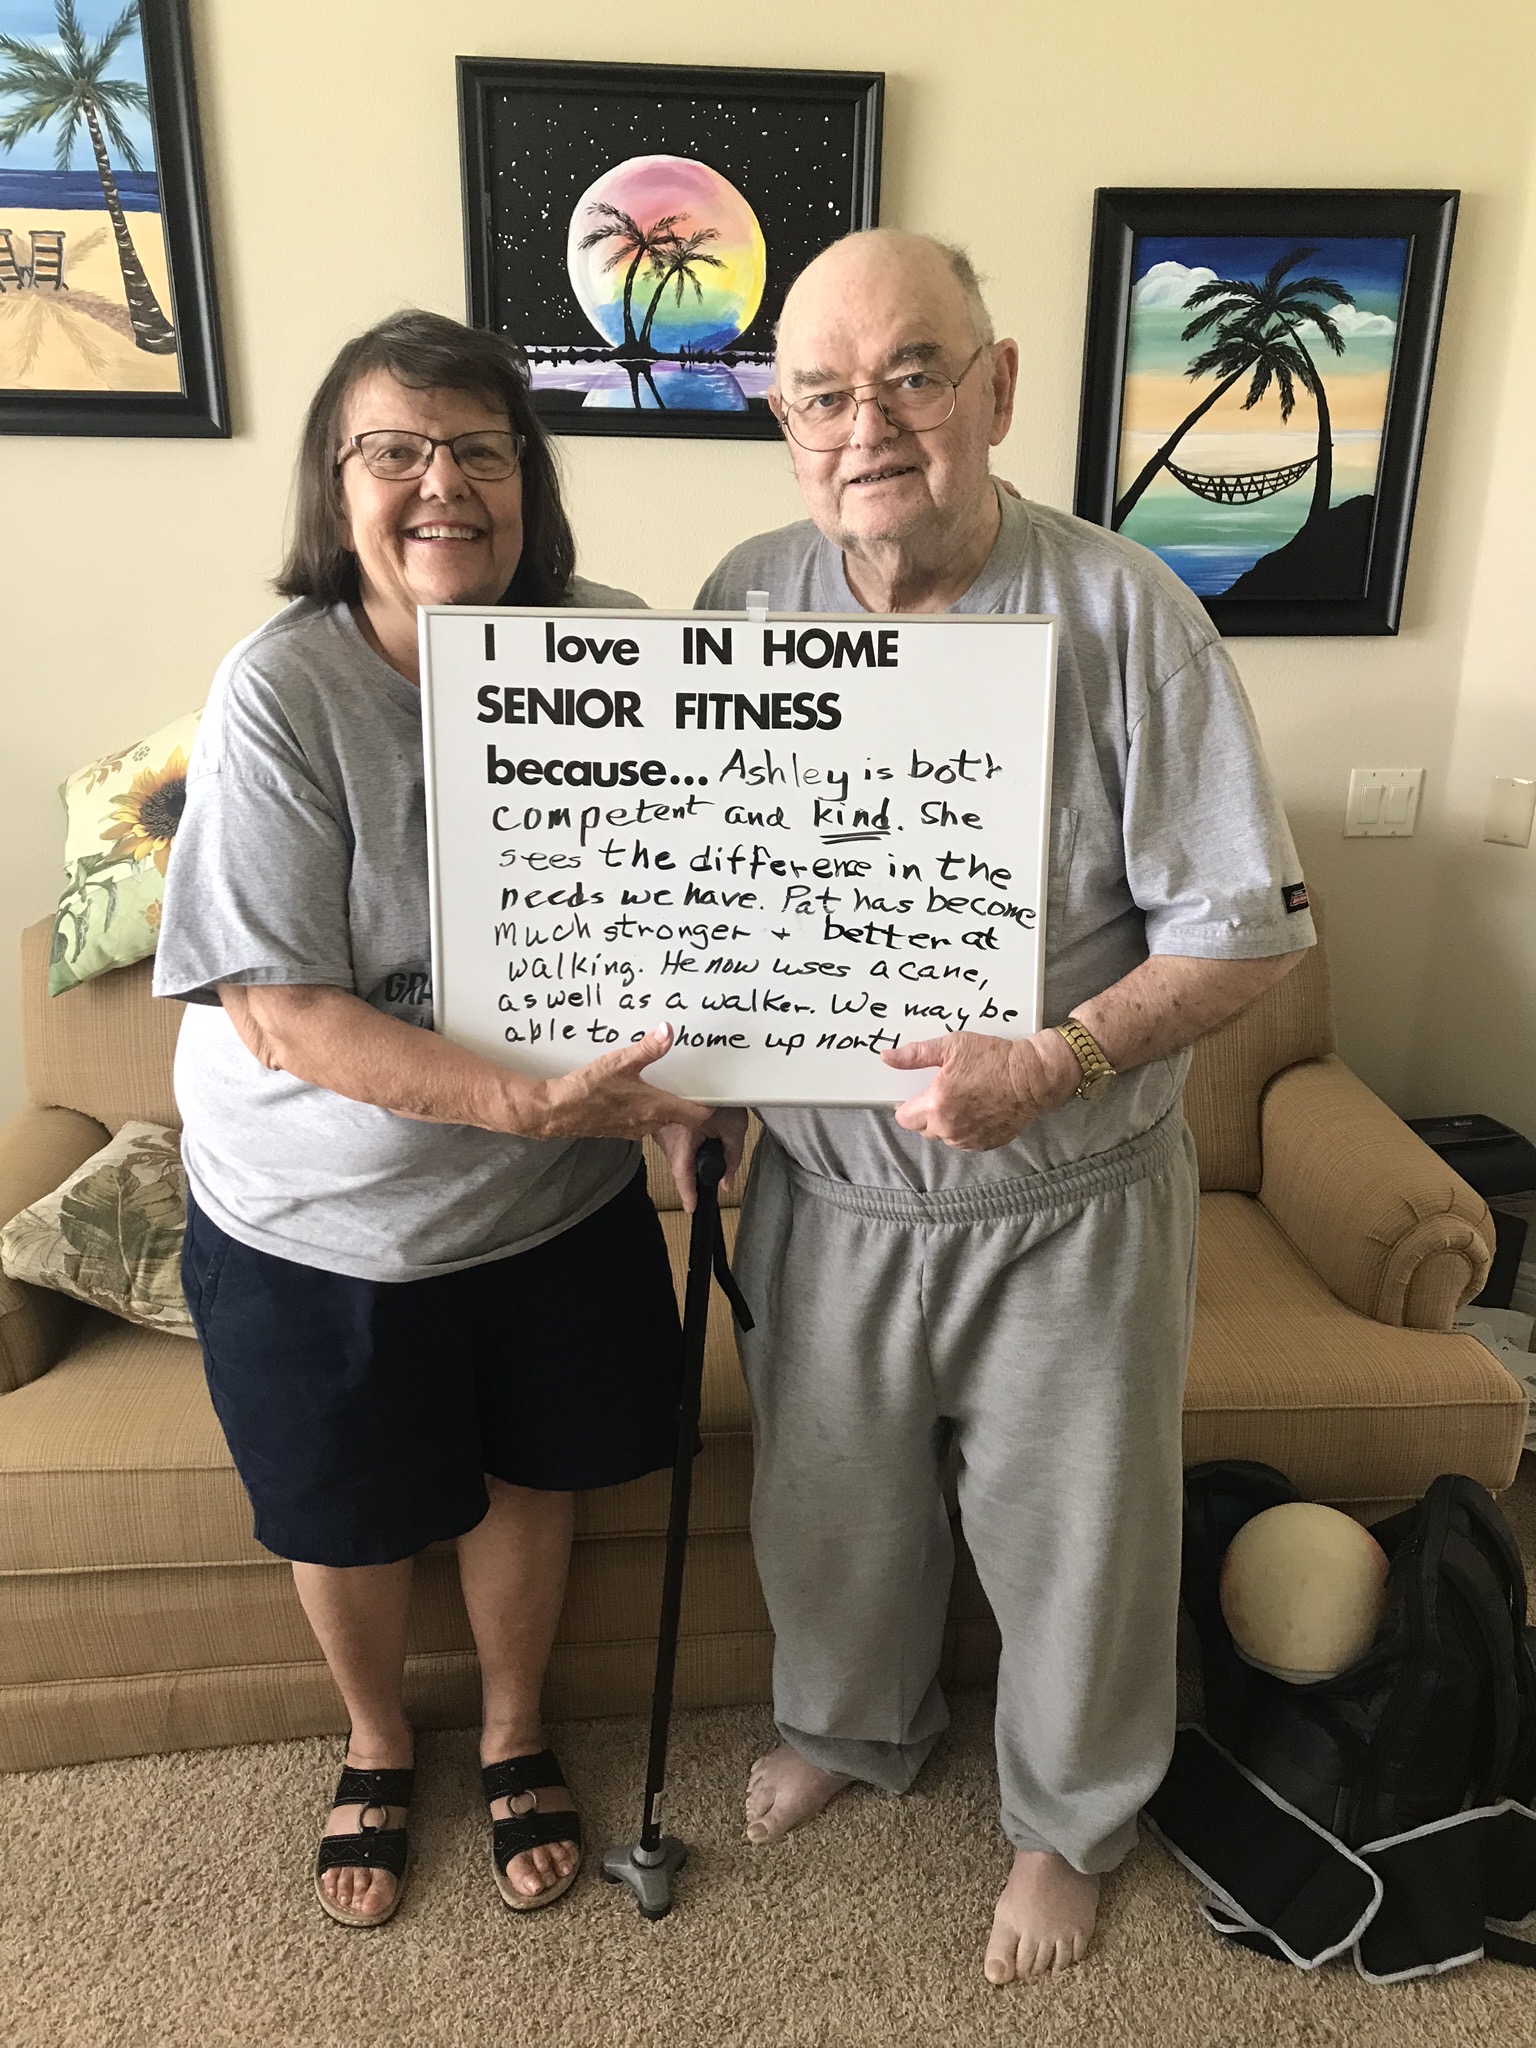 I love IN HOME
SENIOR FITNESS
because... Ashley is both
competent and kind. She
sees the difference in the
needs we have. Pat has become
much stronger + better at
walking. He now uses a cane,
as well as a walker. We may be
able to home up north
GRA